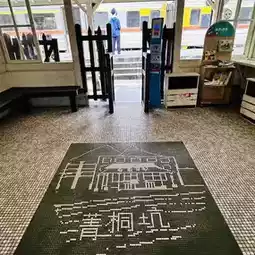 菁桐坑